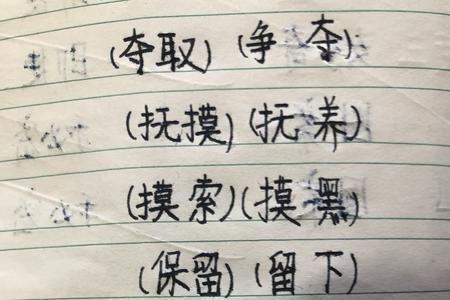 (夺取) (争夺)
(抚摸) (抚养)
(摸索) (摸黑)
(保留) (留下)